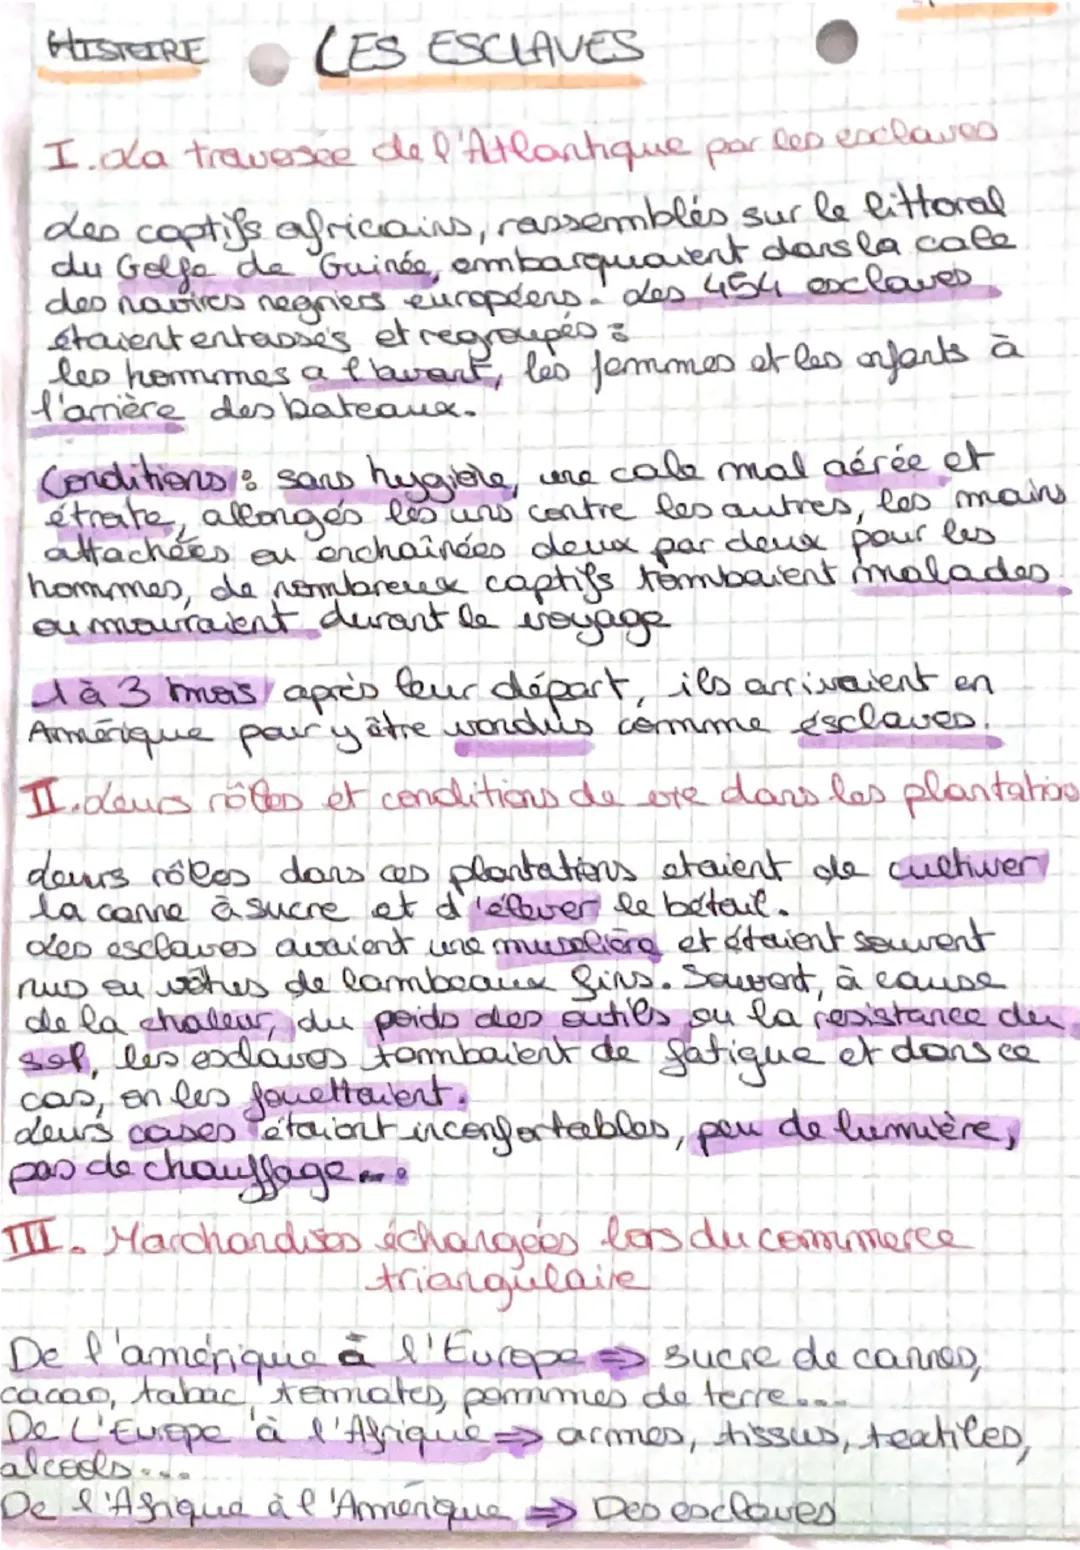 HISTOIRE LES ESCLAVES
I. La traversée de l'Atlantique par les esclaves
Les captifs africains, rassemblés sur le littoral
du Golfe de Guinée, embarquaient dans la cale
des navires negriers européens. Les 454 esclaves
étaient entassés et regroupés :
les hommes a l'avant, les femmes et les enfants à
l'arrière des bateaux.
Conditions : sans hygiène, une cale mal aérée et
étroite, allongés les uns contre les autres, les mains
attachées ou enchaînées deux par deux pour les
hommes, de nombreux captifs tombaient malades
ou mouraient durant le voyage
1 à 3 mois après leur départ, ils arrivaient en
Amérique pour y être vendus comme esclaves.
II. Leurs rôles et conditions de vie dans les plantations
Leurs rôles dans ces plantations etaient de cultiver
la canne à sucre et d'élever le bétail.
Les esclaves avaient une muselière et étaient souvent
nus ou vêtus de lambeaux fins. Souvent, à cause
de la chaleur, du poids des outils ou la résistance du
sol, les esclaves tombaient de fatigue et dans ce
cas, on les fouettaient.
Leurs cases étaient inconfortables, peu de lumière,
pas de chauffage...
III. Marchandises échangées lors du commerce
triangulaire
De l'amérique à l'Europe ⇒ sucre de cannes,
cacao, tabac, tomates, pommes de terre....
De L'Europe à l'Afrique ⇒ armes, tissus, textiles,
alcools....
De l'Afrique à l'Amérique ⇒ Des esclaves